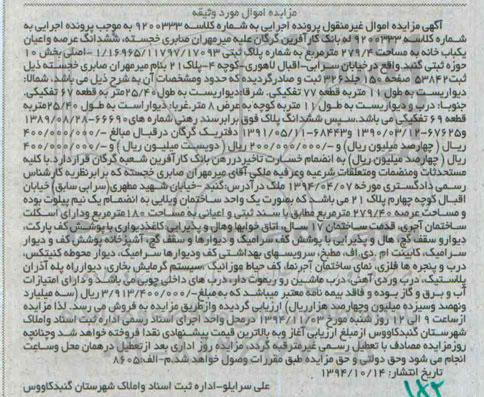 مزایده اموال مورد وثیقه
آگهی مزایده اموال غیرمنقول پرونده اجرایی به شماره کلاسه ۹۲۰۰۳۳۳ به موجب پرونده اجرایی به
شماره کلاسه ۹۲۰۰۳۳۳ له بانک کارآفرین گرگان علیه میرمهران صابری خجسته، ششدانگ عرصه واعیان
یکباب خانه به مساحت ۲۷۹/۴ مترمربع به شماره پلاک ثبتی ۱/۱۶۹۶۵/۱۱۷۹۷/۱۷۰۹۳ - اصلی بخش ۱۰
حوزه ثبتی گنبد واقع درخیابان سرابی-اقبال لاهوری-کوچه ۴-پلاک ۲۱ بنام میرمهران صابری خجسته ذیل
ثبت ۵۳۸۴۲ صفحه ۱۵۰ جلد ۳۲۶ ثبت و صادر گردیده که حدود ومشخصات آن به شرح ذیل می باشد، شمالا:
دیواریست به طول ۱۱ متر به قطعه ۷۷ تفکیکی. شرقا: دیواریست به طول ۲۵/۴۰ متر به قطعه ۶۷ تفکیکی.
جنوبا: درب و دیواریست به طول ۱۱ متر به کوچه به عرض ۸ متر. غربا: دیواراست به طول ۲۵/۴۰ متر به
قطعه ۶۹ تفکیکی می باشد.سپس ششدانگ پلاک فوق برابرسند رهنی شماره های ۶۶۶۹۰-۱۳۸۹/۰۸/۲۸
و ۶۷۶۲۵-۱۳۹۰/۰۳/۱۲ و ۶۸۴۴۳-۱۳۹۱/۰۵/۱۱ دفتریک گرگان درقبال مبالغ ۴۰۰/۰۰۰/۰۰۰/-
ریال ( چهارصد میلیون ریال) و -/۲۰۰/۰۰۰/۰۰۰ ریال (دویست میلیون ریال ) و -/۴۰۰/۰۰۰/۰۰۰
ریال ( چهارصد میلیون ریال) به انضمام خسارت تاخیر در رهن بانک کارآفرین شعبه گرگان قرار دارد.با کلیه
مستحدثات ومنضمات ومتعلقات شرعیه وعرفیه ملکی آقای میرمهران صابری خجسته که برابرنظریه کارشناس
رسمی دادگستری مورخه ۱۳۹۴/۰۴/۰۷ ملک درآدرس:گنبد -خیابان شهید مطهری(سرابی سابق)خیابان
اقبال کوچه چهارم پلاک ۲۱ می باشد که بصورت یک واحد ساختمان ویلایی به انضمام یک نیم پیلوت بوده
و مساحت عرصه ۲۷۹/۴۰ مترمربع مطابق با سند ثبتی و اعیانی به مساحت ۱۸۰ مترمربع ودارای اسکلت
ساختمان آجری. قدمت ساختمان ۱۷ سال، اتاق خوابها وهال و پذیرایی کاغذدیواری با پوشش کف پارکت،
دیوارو سقف گچ. هال و پذیرایی با پوشش کف سرامیک و دیوارها و سقف گچ. آشپزخانه پوشش کف و دیوار
سرامیک، کابینت ام . دی.اف، مطبخ، سرویسهای بهداشتی کف ودیوارها سرامیک، دیوار محوطه گنیتکس،
درب و پنجره ها فلزی، نمای ساختمان آجرنما، کف حیاط موزائیک ،سیستم گرمایش بخاری، دیوارراه پله آذران
پلاستیک، درب وردی آهنی، درب ماشین رو ریموت دار، درب های داخلی چوبی می باشد و دارای امتیازات
آب و برق و گاز بوده و فاقد بیمه نامه معتبر میباشد که به مبلغ -/۳/۹۱۳/۴۰۰/۰۰۰ ریال (سه میلیارد
ونهصد وسیزده میلیون وچهارصد هزارریال) ارزیابی گردیده وازطریق مزایده به فروش می رسد. لذا مزایده
ازساعت ۹ الی ۱۲ روز شنبه مورخ ۱۳۹۴/۱۱/۰۳ درمحل واحد اجرای اسناد رسمی اداره ثبت اسناد واملاک
شهرستان گنبدکاووس ازمبلغ ارزیابی آغاز وبه بالاترین قیمت پیشنهادی نقدا فروخته خواهد شد وچنانچه
روزمزایده مصادف با تعطیل رسمی غیرمترقبه گردد، مزایده روز اداری بعد ازتعطیل درهمان محل وساعت
انجام می شود وحق دولتی و حق مزایده طبق مقررات وصول خواهد شد.م-الف: ۸۶۰۵
تاریخ انتشار: ۱۳۹۴/۱۰/۱۴
علی سرایلو-اداره ثبت اسناد واملاک شهرستان گنبدکاووس
۱۸۲